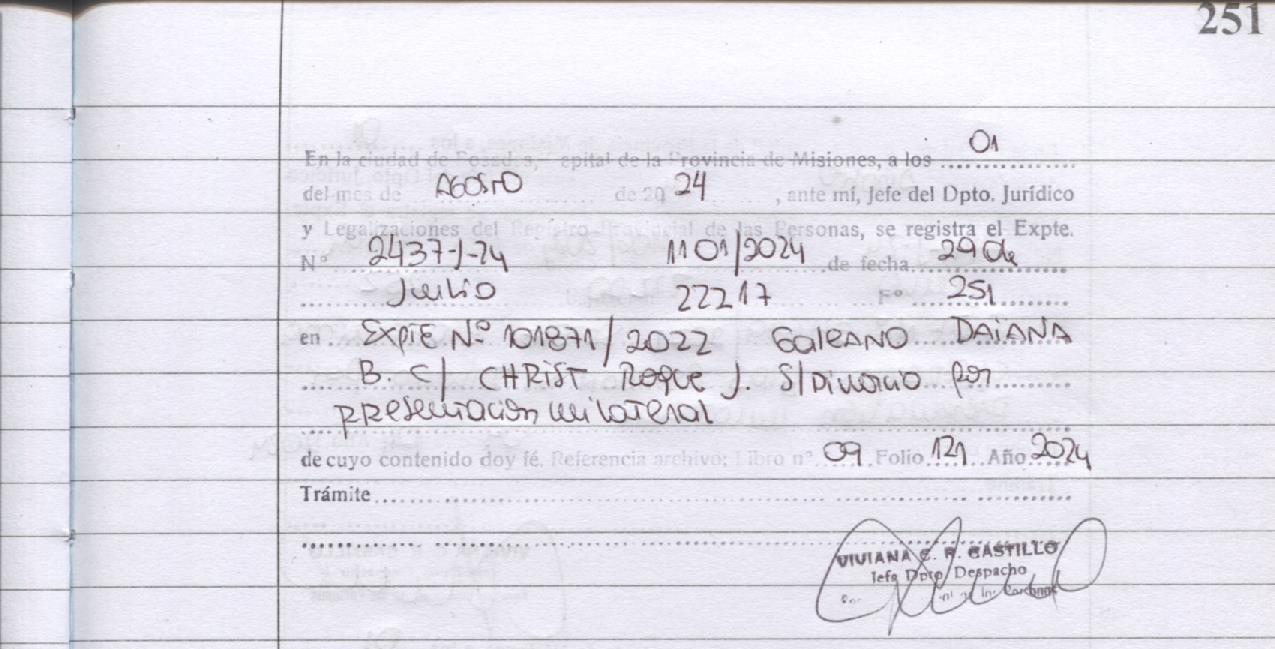 251
En la ciudad de Posadas, Capital de la Provincia de Misiones, a los 01
del mes de AGOSTO de 20 24, ante mi, Jefe del Dpto. Jurídico
y Legalizaciones del Registro Provincial de las Personas, se registra el Expte.
N° 2437-J-24 1101/2024 de fecha 29 de
Julio 22217 F° 251
en EXPTE Nº 101871/2022 GALEANO DAIANA
B. C/ CHRIST ROQUE J. S/DIVORCIO POR
PRESENTACION UNILATERAL
de cuyo contenido doy fé. Referencia archivo: Libro n° 09 Folio 121 Año 2024
Trámite
VIVIANA C. R. CASTILLO
Jefa Dpto Despacho